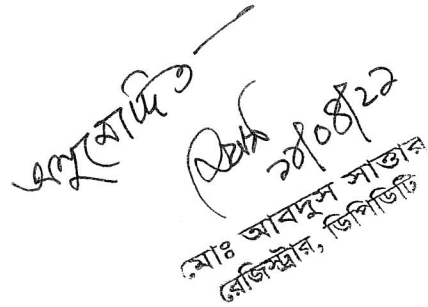 অনুমোদিত
২৮/০৪/২২
মোঃ আবদুস সাত্তার
রেজিস্ট্রার, ডিপিডিটি